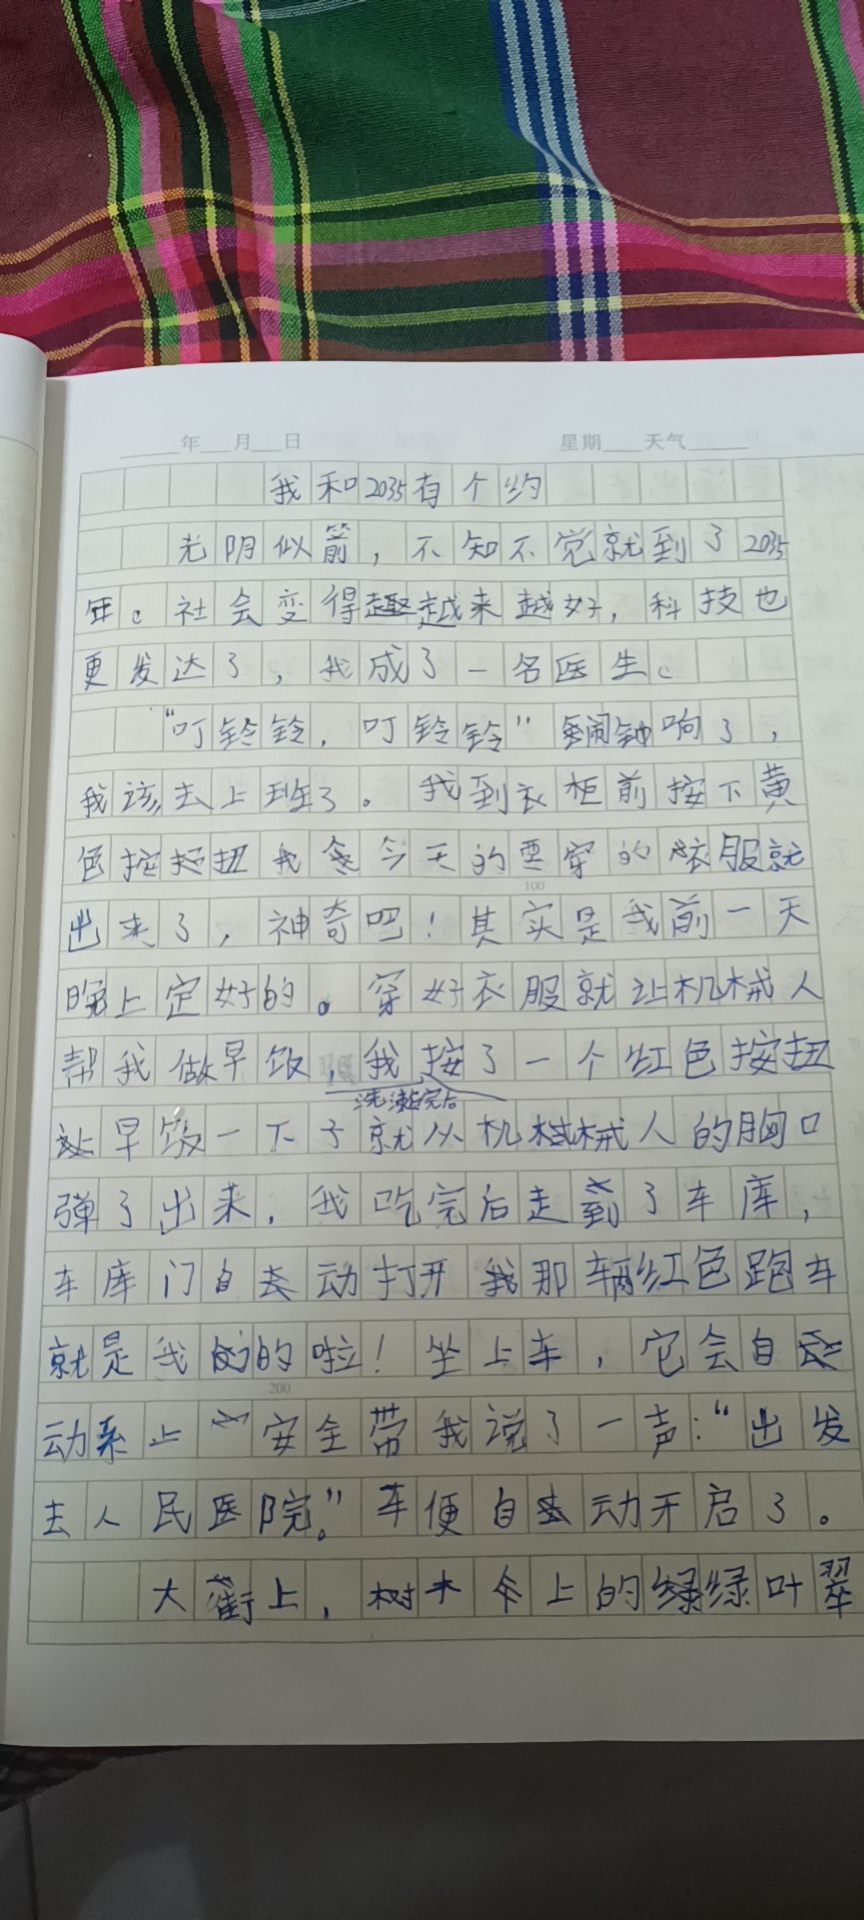 年 月 日 星期 天气
我和2035有个约
光阴似箭，不知不觉就到了2035
年。社会变得越来越好，科技也
更发达了，我成了一名医生。
“叮铃铃，叮铃铃”闹钟响了，
我该去上班了。我到衣柜前按下黄
色按扭我今天的要穿的衣服就
100
出来了，神奇吧！其实是我前一天
晚上定好的。穿好衣服就让机械人
帮我做早饭，我按了一个红色按扭
洗漱完后
早饭一下子就从机械人的胸口
弹了出来，我吃完后走到了车库，
车库门自动打开我那辆红色跑车
就是我的啦！坐上车，它会自
200
动系上安全带我说了一声：“出发
去人民医院。”车便自动开启了。
大街上，树木上的绿叶翠